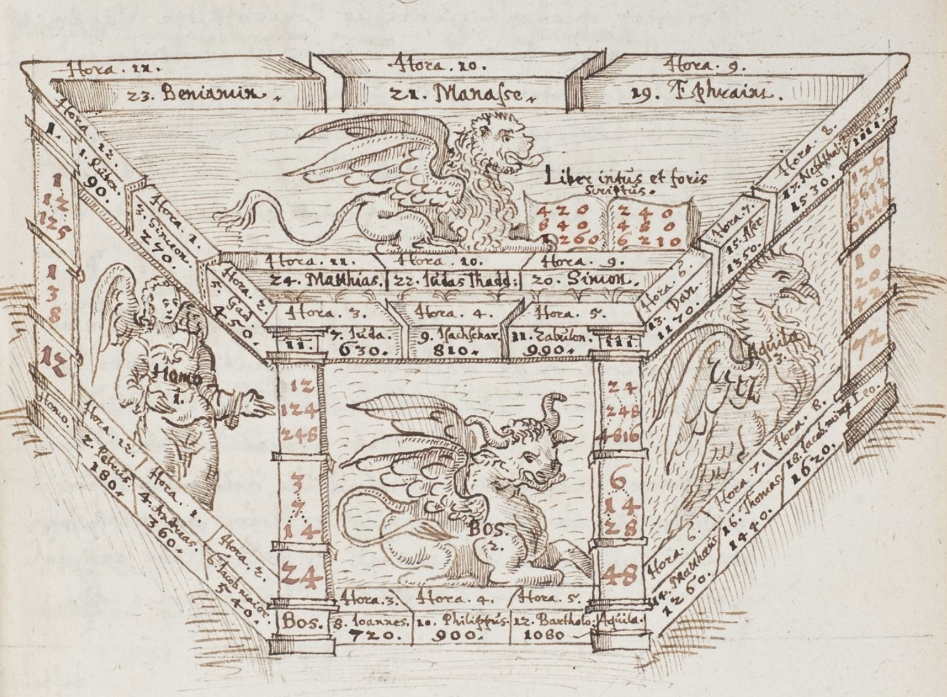 Hora. 11.
Hora. 10.
Hora. 9.
23. Beniamin.
21. Manasse.
19. Ephraim.
Liber intus et foris
scriptus.
420 240
840 480
6260 6210
Hora. 11.
Hora. 10.
Hora. 9.
24. Matthias.
22. Iudas Thadd:
20. Simon.
Hora. 12.
1. Ruben.
90.
Hora. 1.
3. Simeon.
270.
Hora. 2.
5. Gad
450.
Hora. 3.
Hora. 4.
Hora. 5.
7. Iuda.
9. Isachschar.
11. Zabulon.
630.
810.
990.
Hora. 6.
13. Dan.
1170.
Hora. 7.
15. Aser.
1350.
Hora. 8.
17. Nephthali
1530.
I.
1
12
125
1
3
8
12
Homo.
Homo
1.
II.
12
124
248
3
7
14
24
Bos.
Bos.
2.
III.
24
248
4816
6
14
28
48
Aquila.
Aquila
3.
IIII.
10
20
42
72
Leo.
Hora. 12.
2. Petrus.
180.
Hora. 1.
4. Andreas.
360.
Hora. 2.
6. Iacob maior
540.
Hora. 3.
Hora. 4.
Hora. 5.
8. Ioannes.
10. Philippus.
12. Bartholo:
720.
900.
1080
Hora. 6.
14. Matthæus
1260.
Hora. 7.
16. Thomas.
1440.
Hora. 8.
18. Iacob minor
1620.